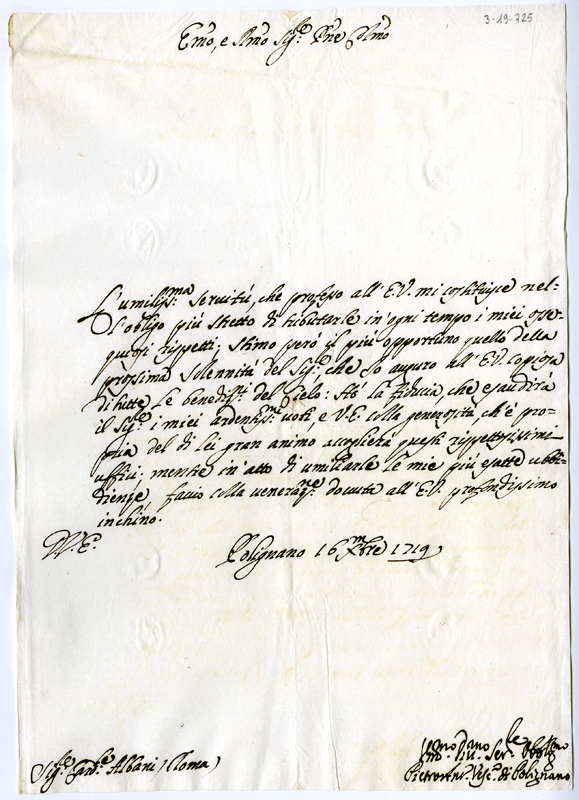 3-19-725
Emo, e Rmo Sig.re Pne Olmo
L'umiliss.ma servitù, che professo all'E.V. mi costituisce nel-
l'obligo più stretto di tributarle in ogni tempo i miei osse-
quiosi rispetti: stimo però il più opportuno quello della
prossima solennità del Sig.re che Io auguro all'E.V. copiosa
di tutte le benediz.ni del Cielo: Hò la fiducia, che esaudirà
il Sig.re i miei ardentiss.mi voti, e V.E. colla generosità ch'è pro-
pria del di lei gran animo accoglierà questi rispettosissimi
uffici; mentre in atto di umiliarle le mie più esatte ubbi-
dienze, faccio colla veneraz.ne dovuta all'E.V. profondissimo
inchino.
D.V.E.
Polignano 16 Xmbre 1719
Sig.re Card.le Albani (Roma)
Umo Dmo Ser.le Obblig.mo
Pietrant.o Vesc. di Polignano